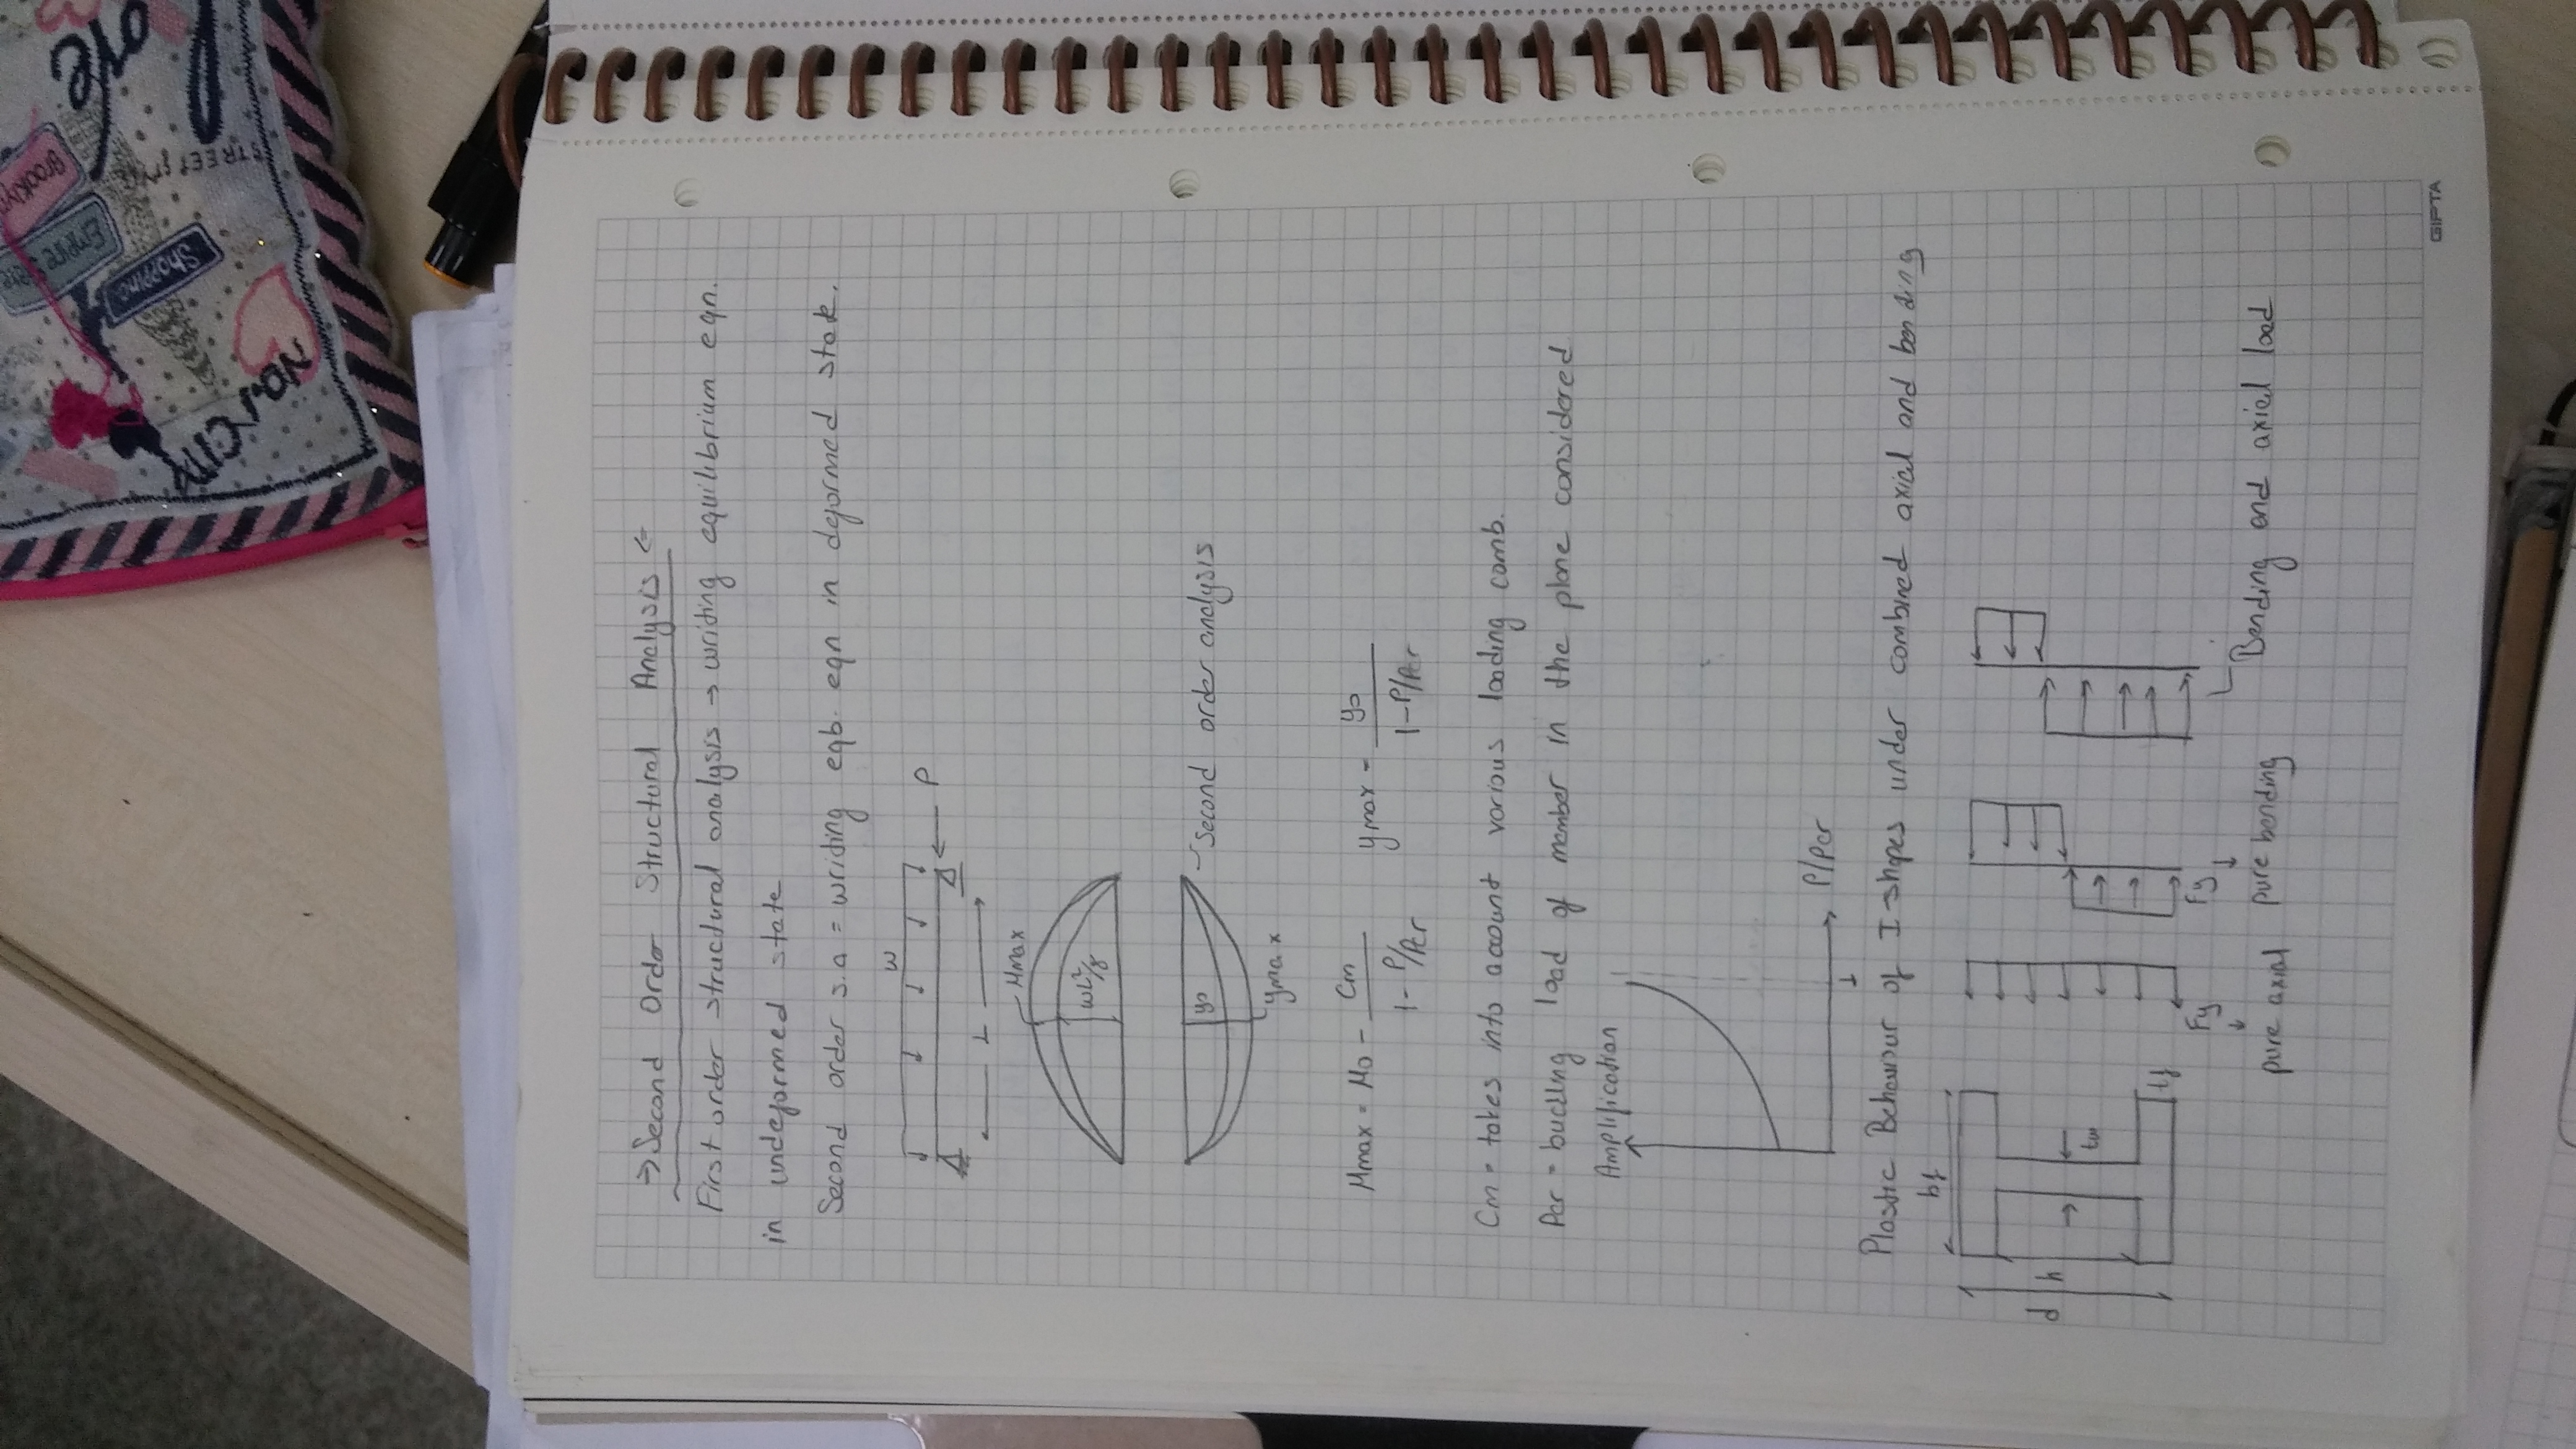 Brooklyn
Empire
Shopping
CITY
STREET
→Second Order Structural Analysis←
First order structural analysis → writing equilibrium eqn.
in undeformed state
Second order s.a = writing eqb. eqn in deformed state.
w
P
L
Mmax
wL²/8
y0
Second order analysis
ymax
Mmax = M0 - Cm / 1 - P/Pcr ymax = y0 / 1-P/Pcr
Cm = takes into account various loading comb.
Pcr = buckling load of member in the plane considered
Amplification
P/Pcr
1
Plastic Behaviour of I-shapes under combined axial and bending
bf
d h
tw
tf
Fy Fy
pure axial pure bending Bending and axial load
GIPTA